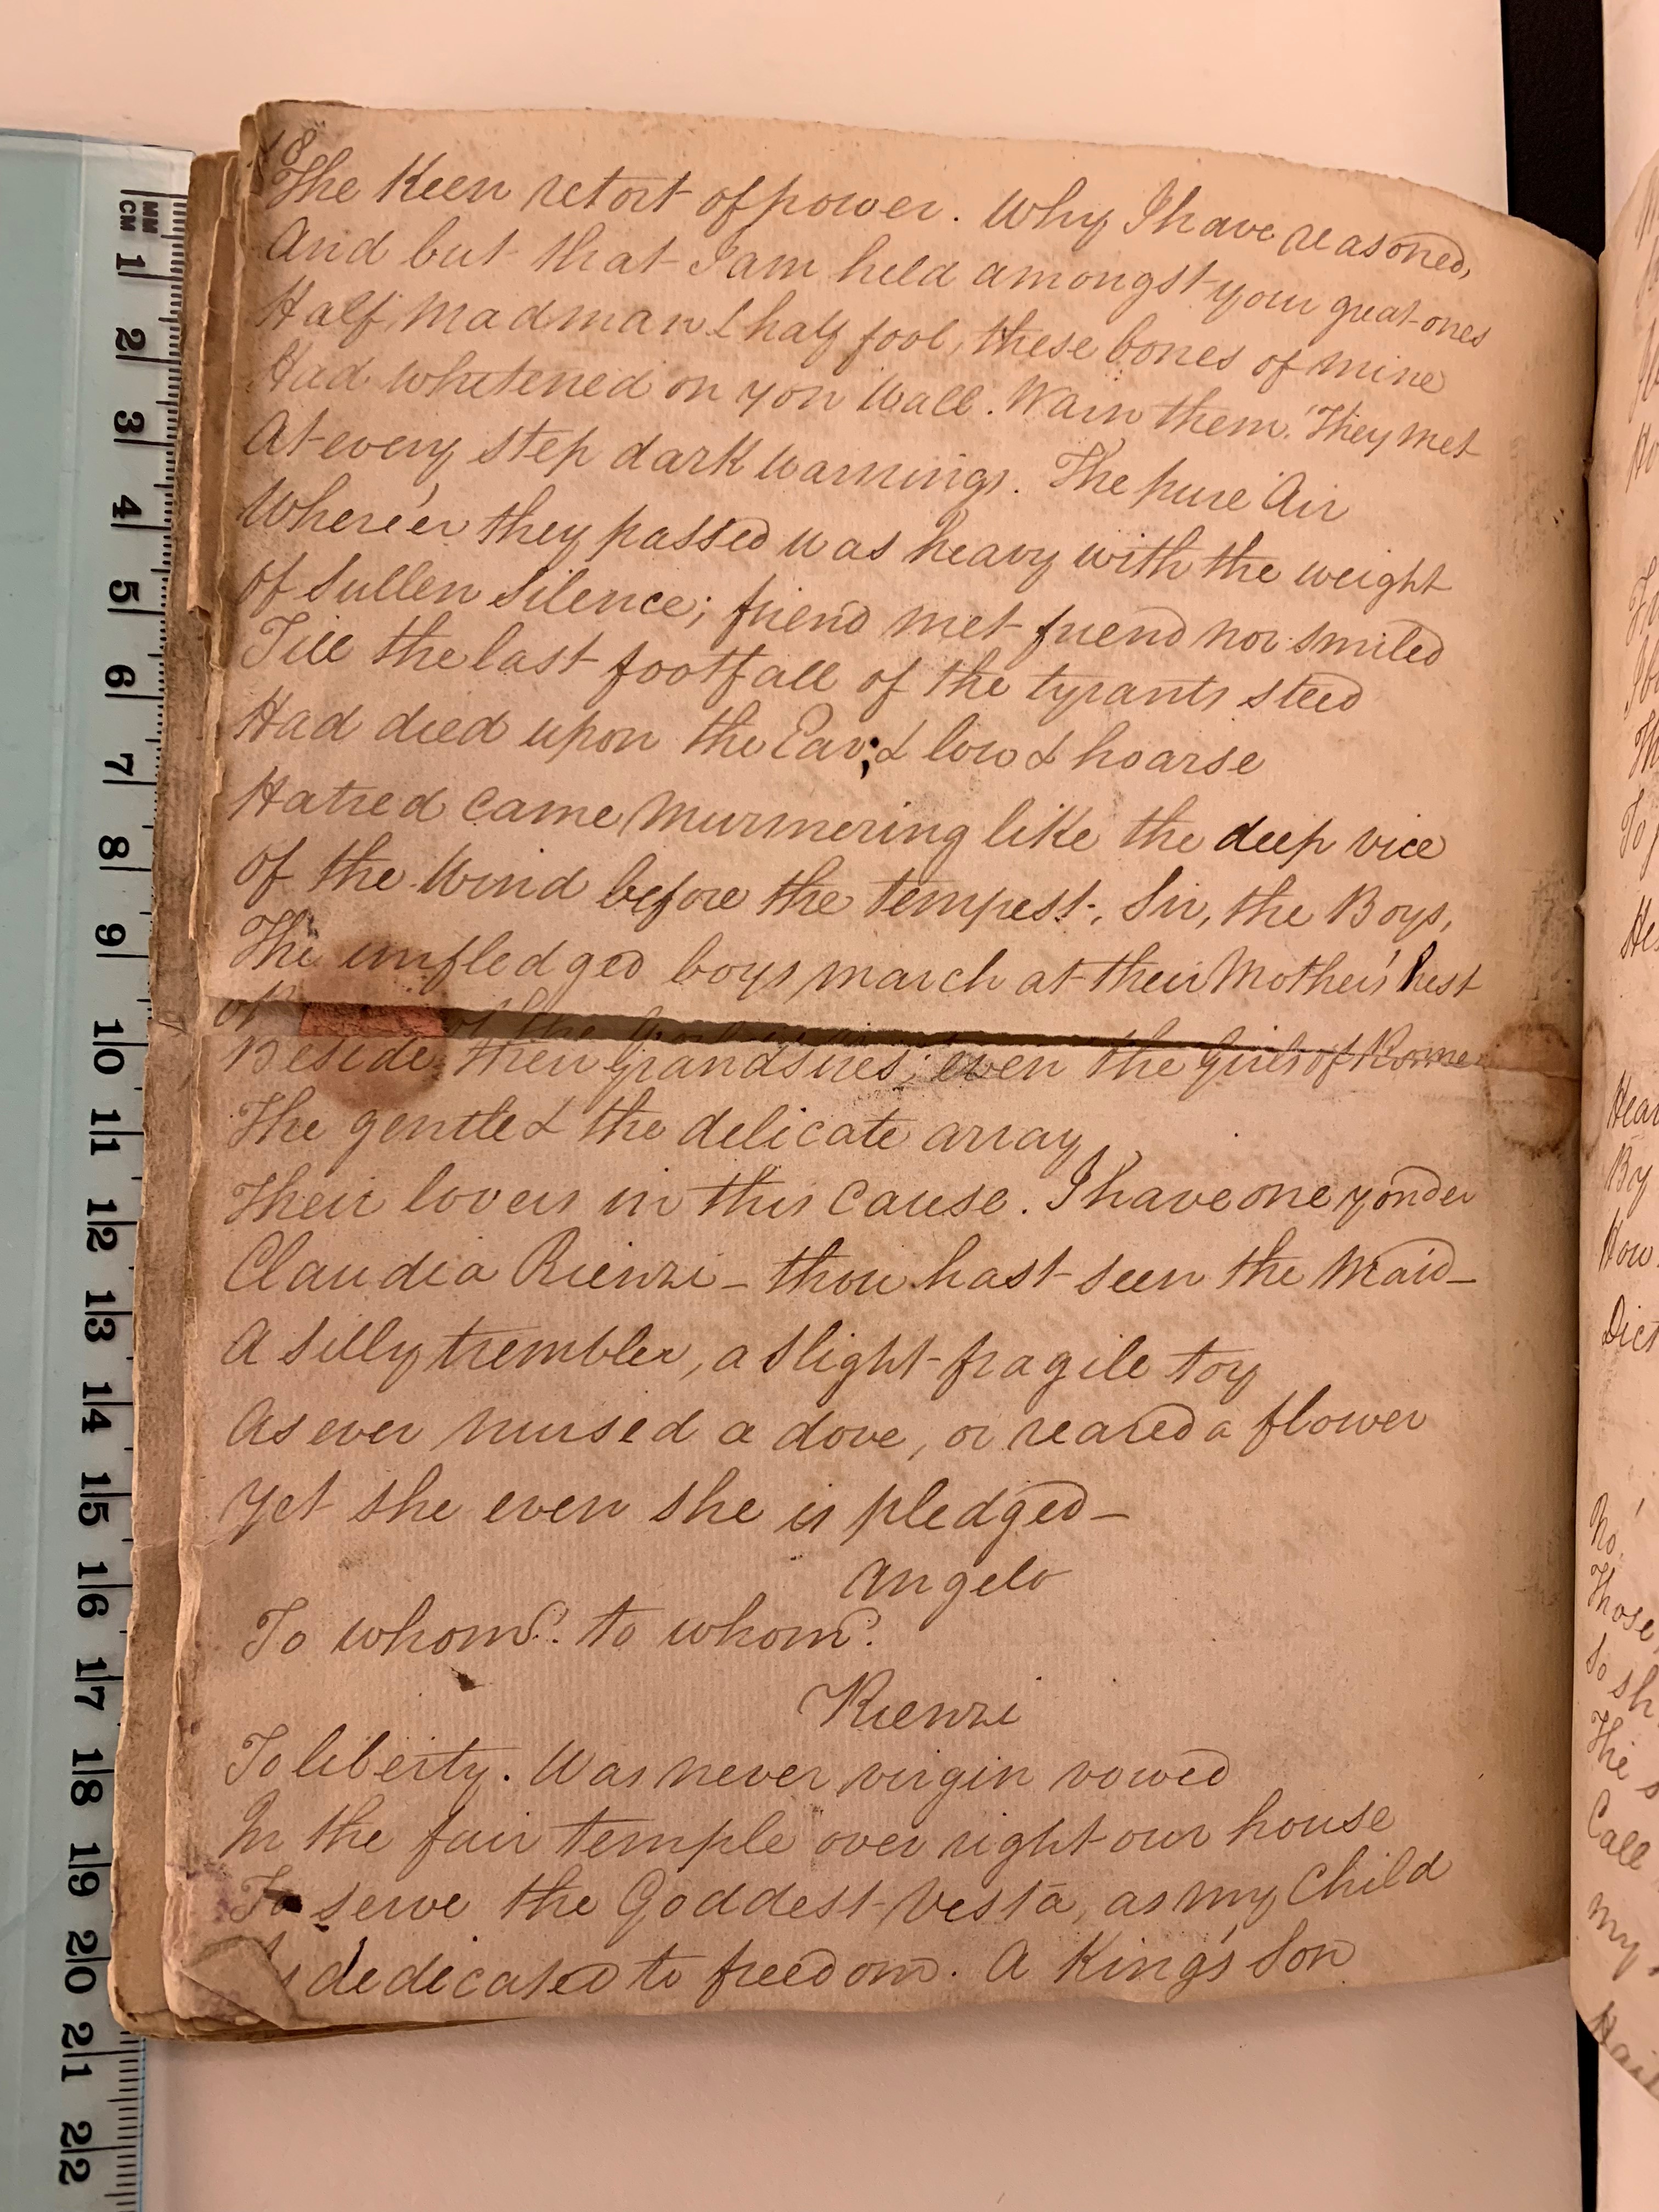 18
The Keen retort of power. Why I have reasoned,
And but that I am held amongst your great ones
Half Madman & half fool, these bones of mine
Had whitened on yon Wall. Warn them! They met
At every step dark warnings. The pure Air
Where'er they passed was heavy with the weight
Of Sullen Silence; friend met friend nor smiled
Till the last footfall of the tyrants steed
Had died upon the Ear; & low & hoarse
Hatred came Murmering like the deep vice
Of the Wind before the tempest; Sir, the Boys,
The unfledged boys march at their Mother's hest
Beside their Grandsires; even the Girls of Rome
The gentle & the delicate array
Their lovers in this Cause. I have one yonder
Claudia Rienzi – thou hast seen the Maid –
A Silly trembler, a slight fragile toy
As ever nursed a dove, or reared a flower
Yet she even she is pledged –
Angelo
To whom? to whom?
Rienzi
To liberty. Was never virgin vowed
In the fair temple over right our house
To serve the Goddest Vesta, as my Child
dedicated to freedom. A King's Son
MM
CM
1
2
3
4
5
6
7
8
9
10
11
12
13
14
15
16
17
18
19
20
21
22
No!
Those
So sh
The s
Call
My